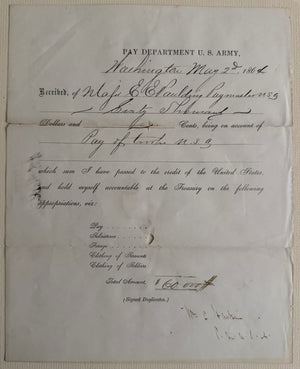 PAY DEPARTMENT U. S. ARMY,
Washington May 2d, 1864
Received, of Major E E Paulding Paymaster U S A
Sixty Thousand
Dollars and Cents, being on account of
Pay of U S A
which sum I have passed to the credit of the United States,
and hold myself accountable at the Treasury on the following
appropriations, viz:
Pay
Subsistence
Forage
Clothing of Servants
Clothing of Soldiers
Total Amount, $ 60.000
(Signed Duplicates.)